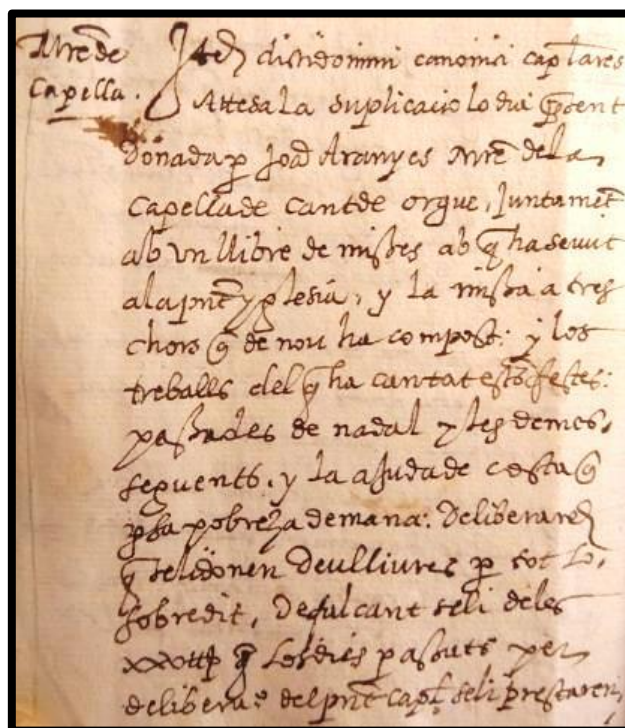 Mre de
Capella.
Item dicti domini canonici capl̄ares
Attesa la suplicacio lo dia p̄sent
donada p̱ Joā Aranyes Mrē dela
Capella de cant de orgue, Juntamēt
ab vn llibre de misses ab q̄ ha seruit
ala pn̄t yglesia, y la missa a tres
chors q̄ de nou ha compost: y los
treballs del q̄ ha cantat estes festes:
passades de nadal y les demes,
seguents, y la ajuda de costa q̄
p̱ sa pobreza demana: Deliberarē
q̄ seli donen deu lliures p̱ tot lo,
sobredit, Defalcant seli deles
q̄ los dies passats per
delibera.º del pn̄t capl̄. seli prestaren,